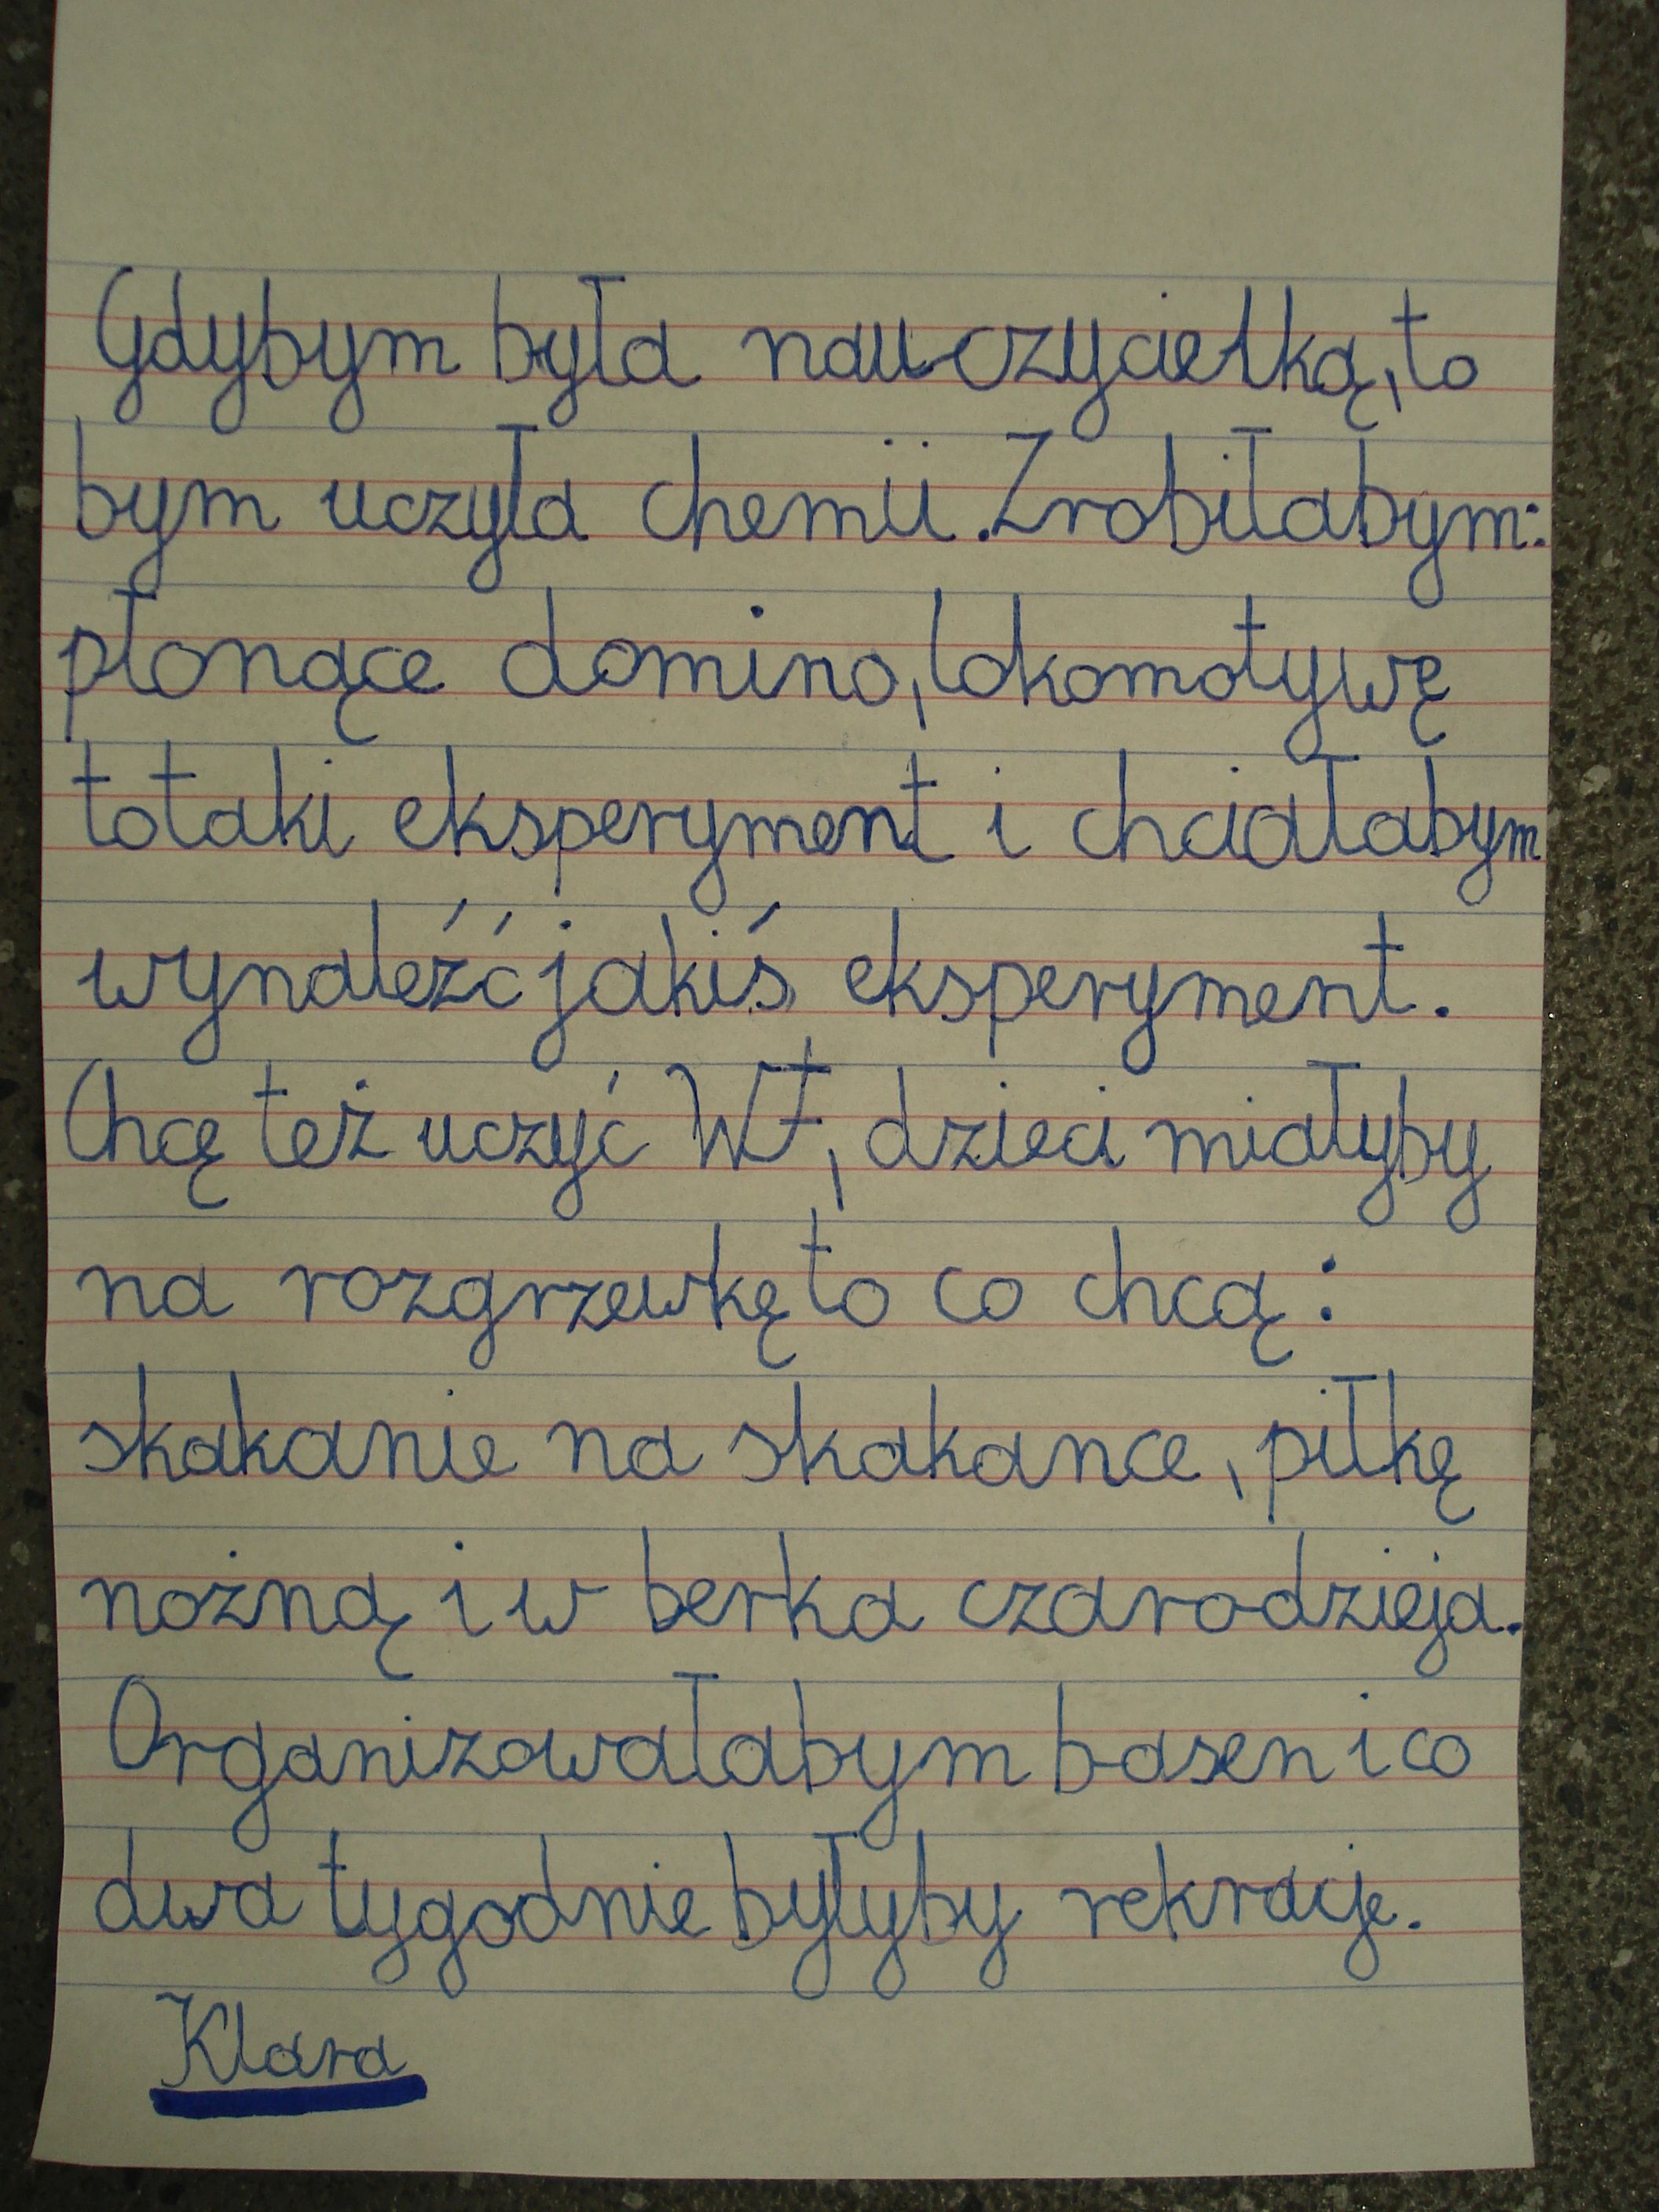 Gdybym była nauczycielką, to
bym uczyła chemii. Zrobiłabym:
płonące domino, lokomotywę
to taki eksperyment i chciałabym
wynaleźć jakiś eksperyment.
Chcę też uczyć WF, dzieci miałyby
na rozgrzewkę to co chcą:
skakanie na skakance, piłkę
nożną i w berka czarodzieja.
Organizowałabym basen i co
dwa tygodnie byłyby rekracje.
Klara